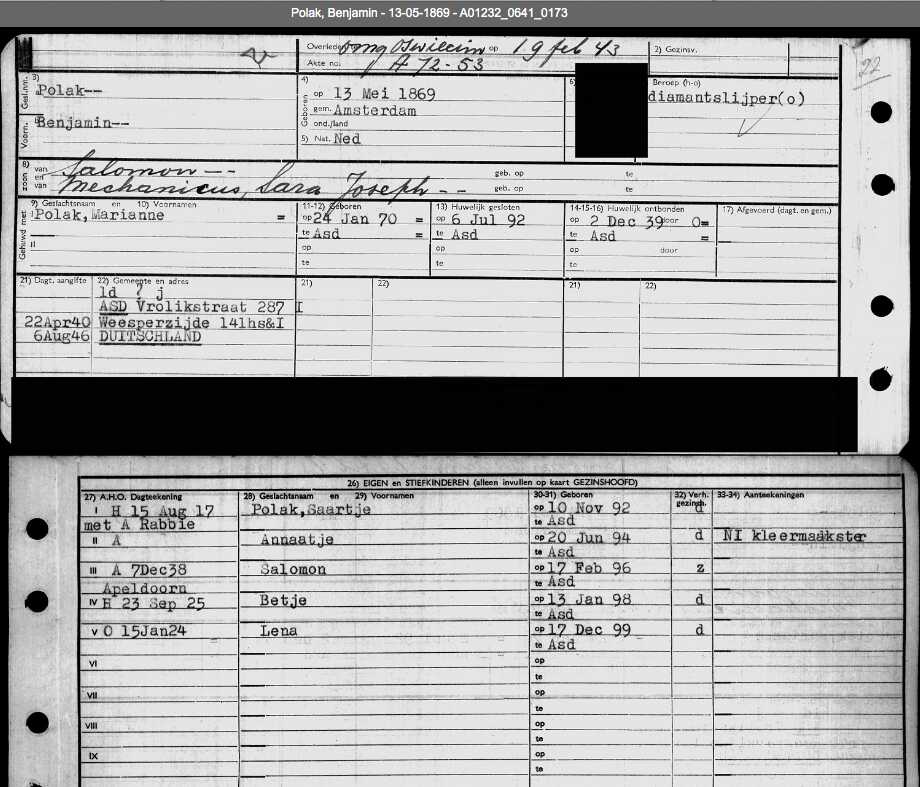 Polak, Benjamin - 13-05-1869 - A01232_0641_0173
Overleden omg Oswiecim op 19 feb 43
2) Gezinsv.
22
Akte no. A 72-53
3)
Gesl.nm. Polak--
Voorn. Benjamin--
4)
Geboren
op 13 Mei 1869
gem. Amsterdam
ond./land
5) Nat. Ned
6)
Beroep (h-o)
diamantslijper(o)
8)
zoon
van Salomon -- geb. op te
en
van Mechanicus, Sara Joseph -- geb. op te
Gehuwd met
9) Geslachtsnaam en 10) Voornamen
I Polak, Marianne =
II
11-12) Geboren
op 24 Jan 70 =
te Asd =
op
te
13) Huwelijk gesloten
op 6 Jul 92
te Asd
op
te
14-15-16) Huwelijk ontbonden
op 2 Dec 39 door O=
te Asd =
op door
te
17) Afgevoerd (dagt. en gem.)
21) Dagt. aangifte 22) Gemeente en adres 21) 22) 21) 22)
1d ? j
ASD Vrolikstraat 287 I
22Apr40 Weesperzijde 141hs&I
6Aug46 DUITSCHLAND
26) EIGEN en STIEFKINDEREN (alleen invullen op kaart GEZINSHOOFD)
27) A.H.O. Dagteekening 28) Geslachtsnaam en 29) Voornamen 30-31) Geboren 32) Verh. gezinsh. 33-34) Aanteekeningen
I H 15 Aug 17 Polak, Saartje op 10 Nov 92 d
met A Rabbie te Asd
II A Annaatje op 20 Jun 94 d NI kleermaakster
te Asd
III A 7Dec38 Salomon op 17 Feb 96 z
Apeldoorn te Asd
IV H 23 Sep 25 Betje op 13 Jan 98 d
te Asd
V O 15Jan24 Lena op 17 Dec 99 d
te Asd
VI op
te
VII op
te
VIII op
te
IX op
te